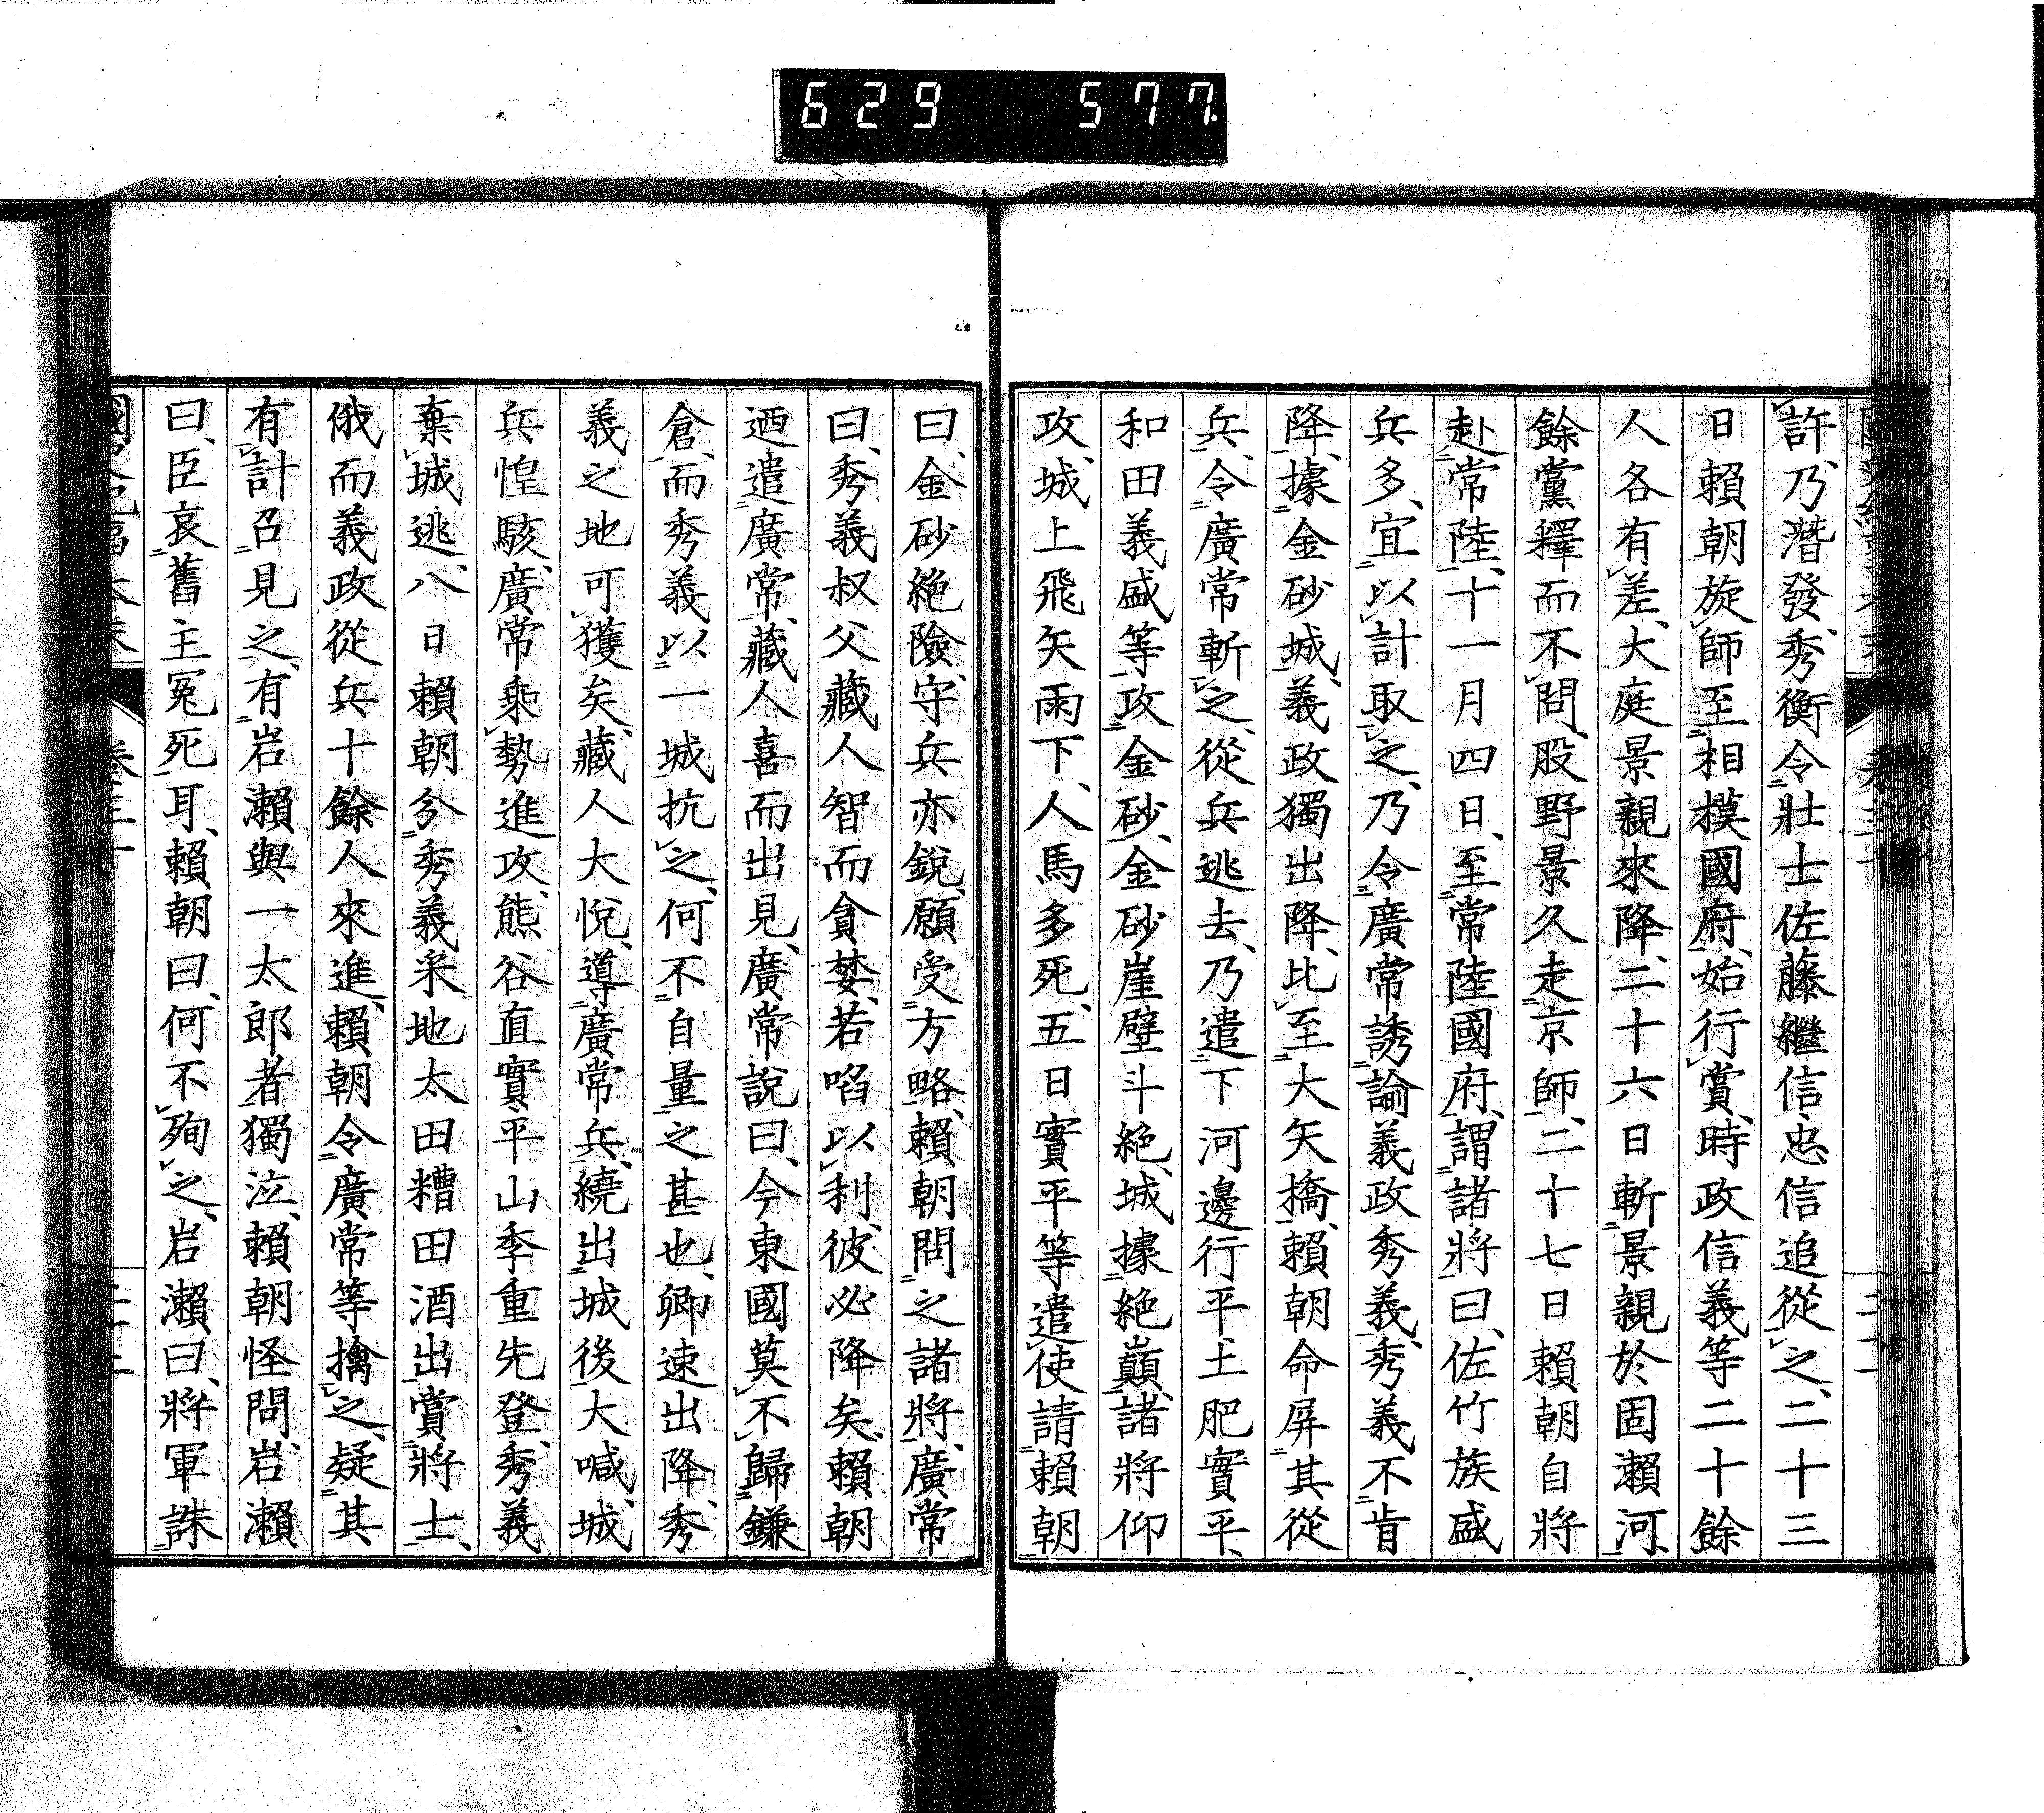 629 577
許、乃潛發、秀衡令壯士佐藤繼信、忠信追從之、二十三
日賴朝旋師至相模國府、始行賞、時政信義等二十餘
人各有差、大庭景親來降、二十六日斬景親於固瀨河、
餘黨釋而不問、股野景久走京師、二十七日賴朝自將
赴常陸、十一月四日、至常陸國府、謂諸將曰、佐竹族盛
兵多、宜以計取之、乃令廣常誘諭義政秀義、秀義不肯
降、據金砂城、義政獨出降、比至大矢橋、賴朝命屏其從
兵、令廣常斬之、從兵逃去、乃遣下河邊行平、土肥實平、
和田義盛等攻金砂、金砂崖壁斗絕、城據絕巔、諸將仰
攻、城上飛矢雨下、人馬多死、五日實平等遣使請賴朝
曰、金砂絕險、守兵亦銳、願受方略、賴朝問之諸將、廣常
曰、秀義叔父藏人智而貪婪、若啗以利、彼必降矣、賴朝
迺遣廣常、藏人喜而出見、廣常說曰、今東國莫不歸鎌
倉、而秀義以一城抗之、何不自量之甚也、卿速出降、秀
義之地可獲矣、藏人大悅、導廣常兵、繞出城後、大喊、城
兵惶駭、廣常乘勢進攻、熊谷直實、平山季重先登、秀義
棄城逃、八日賴朝分秀義采地太田糟田酒出、賞將士、
俄而義政從兵十餘人來進、賴朝令廣常等擒之、疑其
有計召見之、有岩瀨與一太郎者獨泣、賴朝怪問、岩瀨
曰、臣哀舊主冤死耳、賴朝曰、何不殉之、岩瀨曰、將軍誅